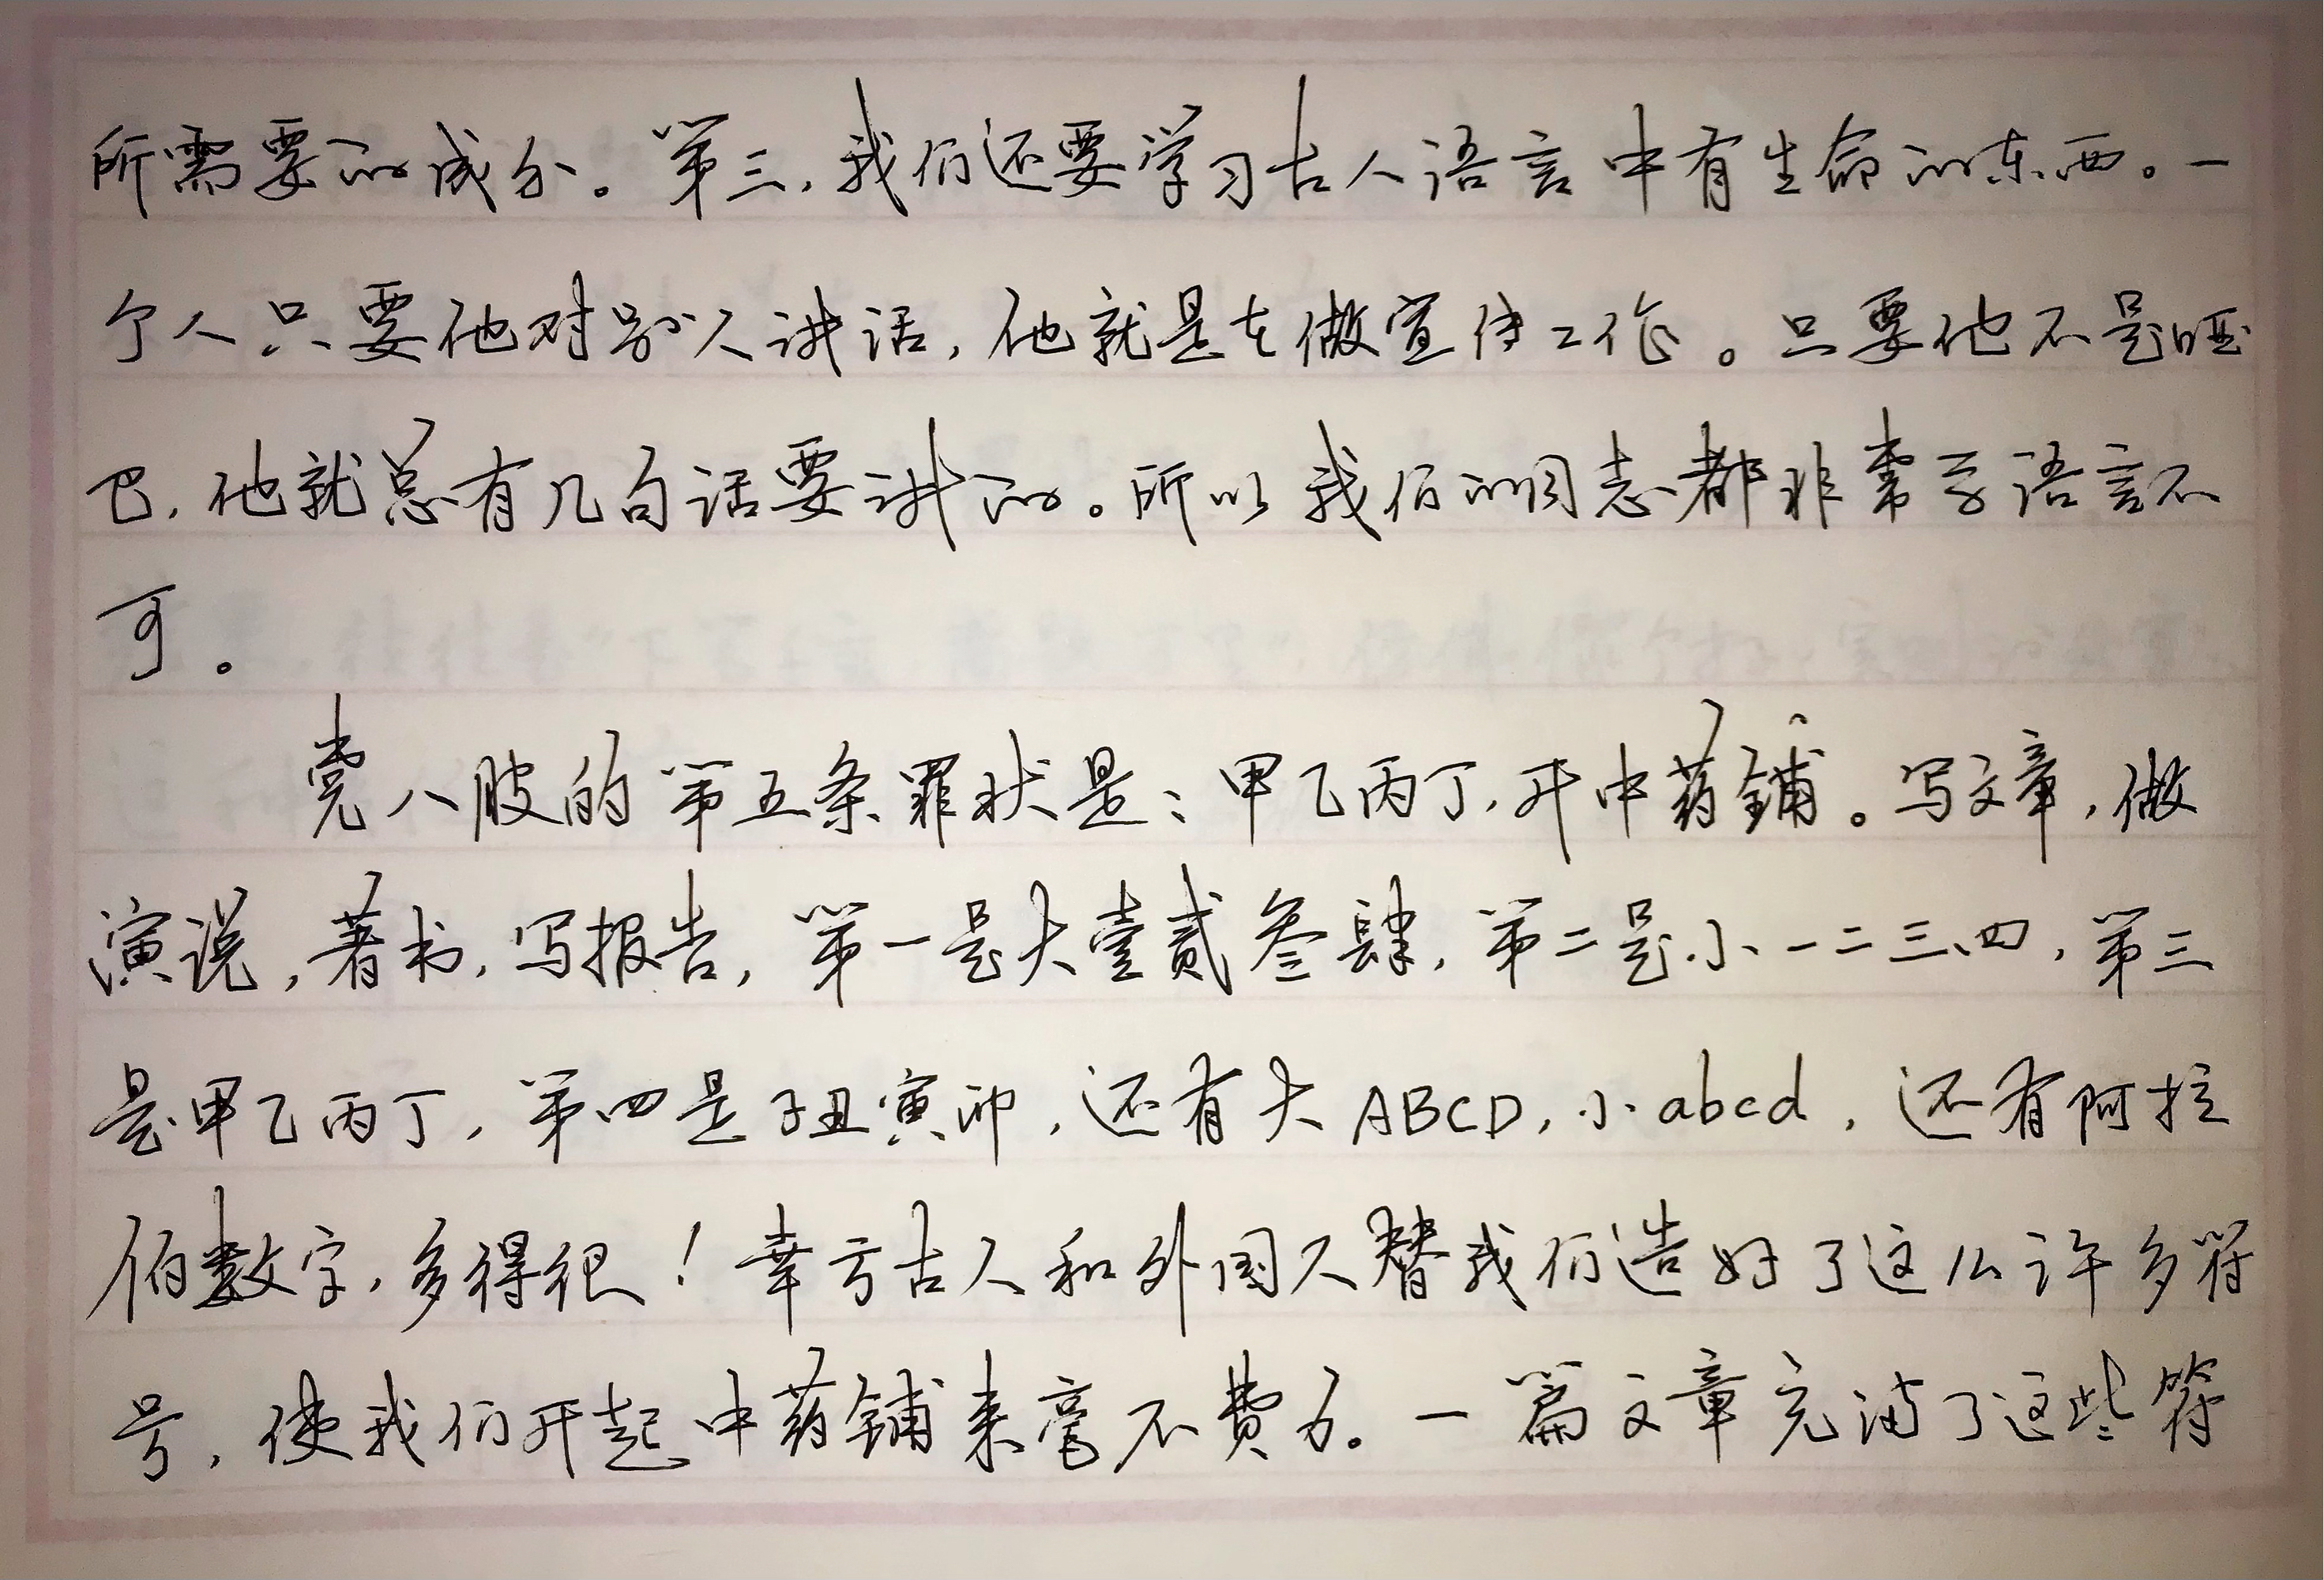 所需要的成分。第三,我们还要学习古人语言中有生命的东西。一
个人只要他对别人讲话,他就是在做宣传工作。只要他不是哑
巴,他就总有几句话要讲的。所以我们的同志都非常学语言不
可。
党八股的第五条罪状是:甲乙丙丁,开中药铺。写文章,做
演说,著书,写报告,第一是大壹贰叁肆,第二是小一二三四,第三
是甲乙丙丁,第四是子丑寅卯,还有大ABCD,小abcd,还有阿拉
伯数字,多得很!幸亏古人和外国人替我们造好了这么许多符
号,使我们开起中药铺来毫不费力。一篇文章充满了这些符